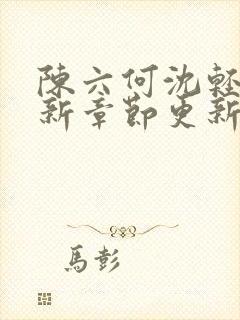 陳六何沈輕
新章節更新
馬彭